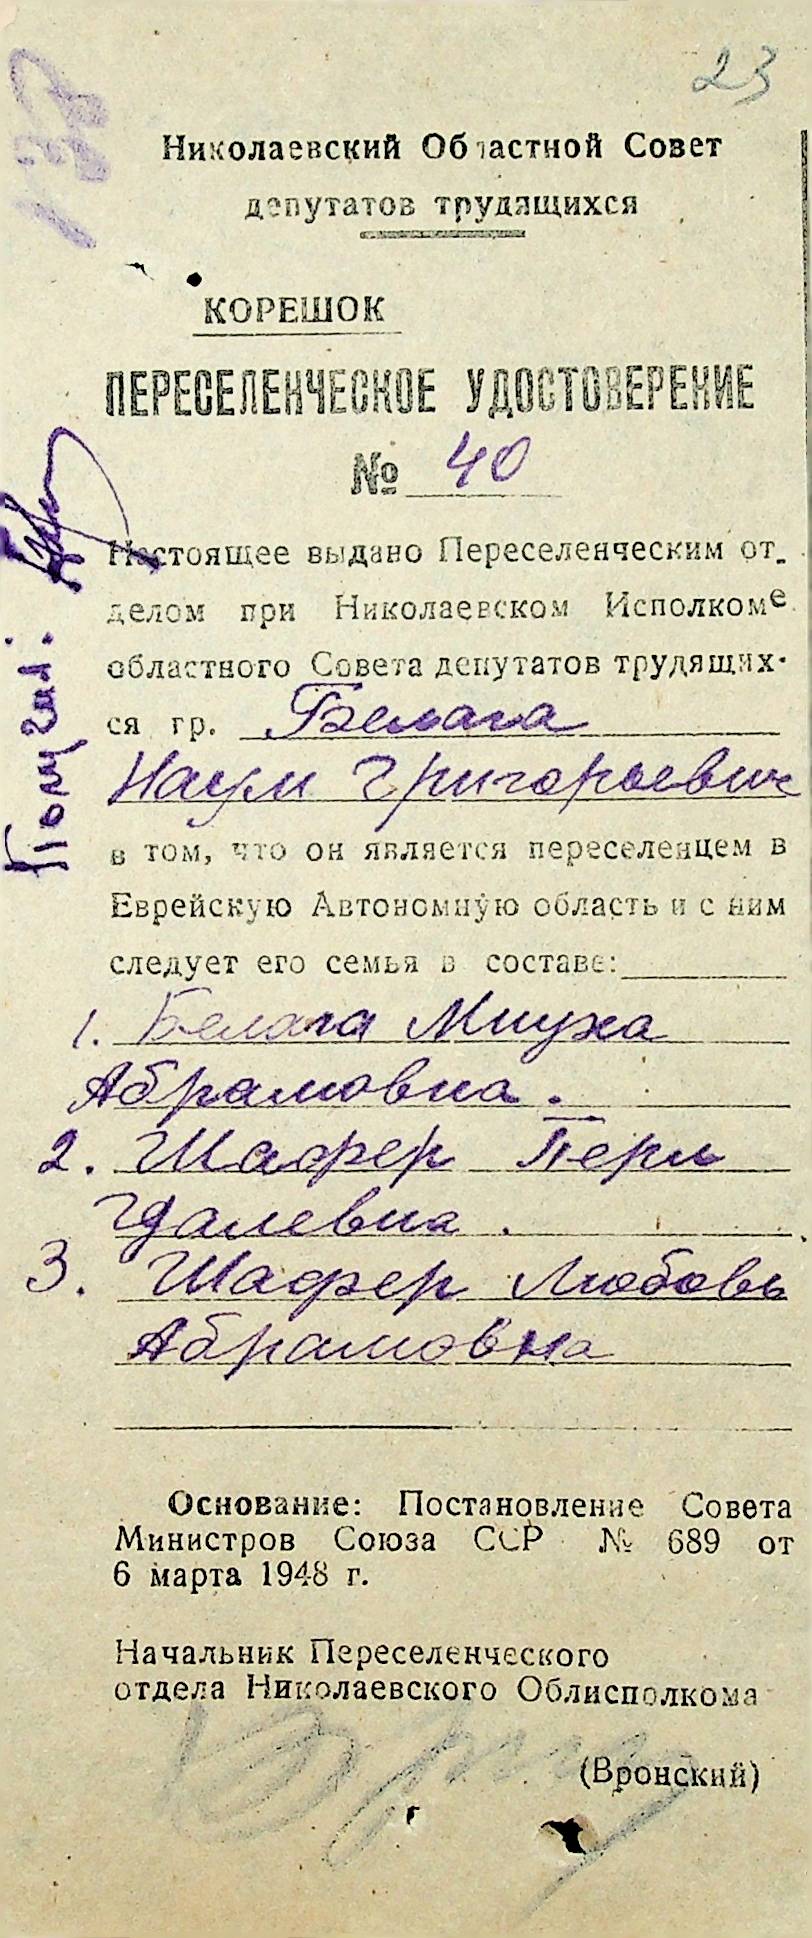 23
138
Николаевский Областной Совет
депутатов трудящихся
КОРЕШОК
ПЕРЕСЕЛЕНЧЕСКОЕ УДОСТОВЕРЕНИЕ
№ 40
Настоящее выдано Переселенческим от-
делом при Николаевском Исполкоме
областного Совета депутатов трудящих-
ся гр. Белага
Наум Григорьевич
в том, что он является переселенцем в
Еврейскую Автономную область и с ним
следует его семья в составе:
1. Белага
Абрамовна.
2. Шафер Перль
Гдалевна.
3. Шафер Любовь
Абрамовна
Основание: Постановление Совета
Министров Союза ССР № 689 от
6 марта 1948 г.
Начальник Переселенческого
отдела Николаевского Облисполкома
(Вронский)
Получил: